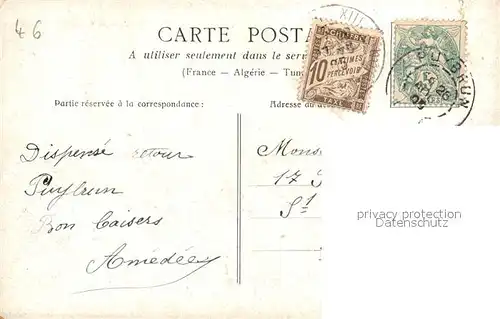 46
CARTE POSTA
A utiliser seulement dans le serv
(France - Algérie - Tun
Partie réservée à la correspondance :
Adresse du d
XIII
CHIFFRE
10 CENTIMES
A PERCEVOIR
TAXE
PUYBRUN
Dispensé retour
Puybrun
Bon Baisers
Amédée
Mons
17
St
privacy protection
Datenschutz